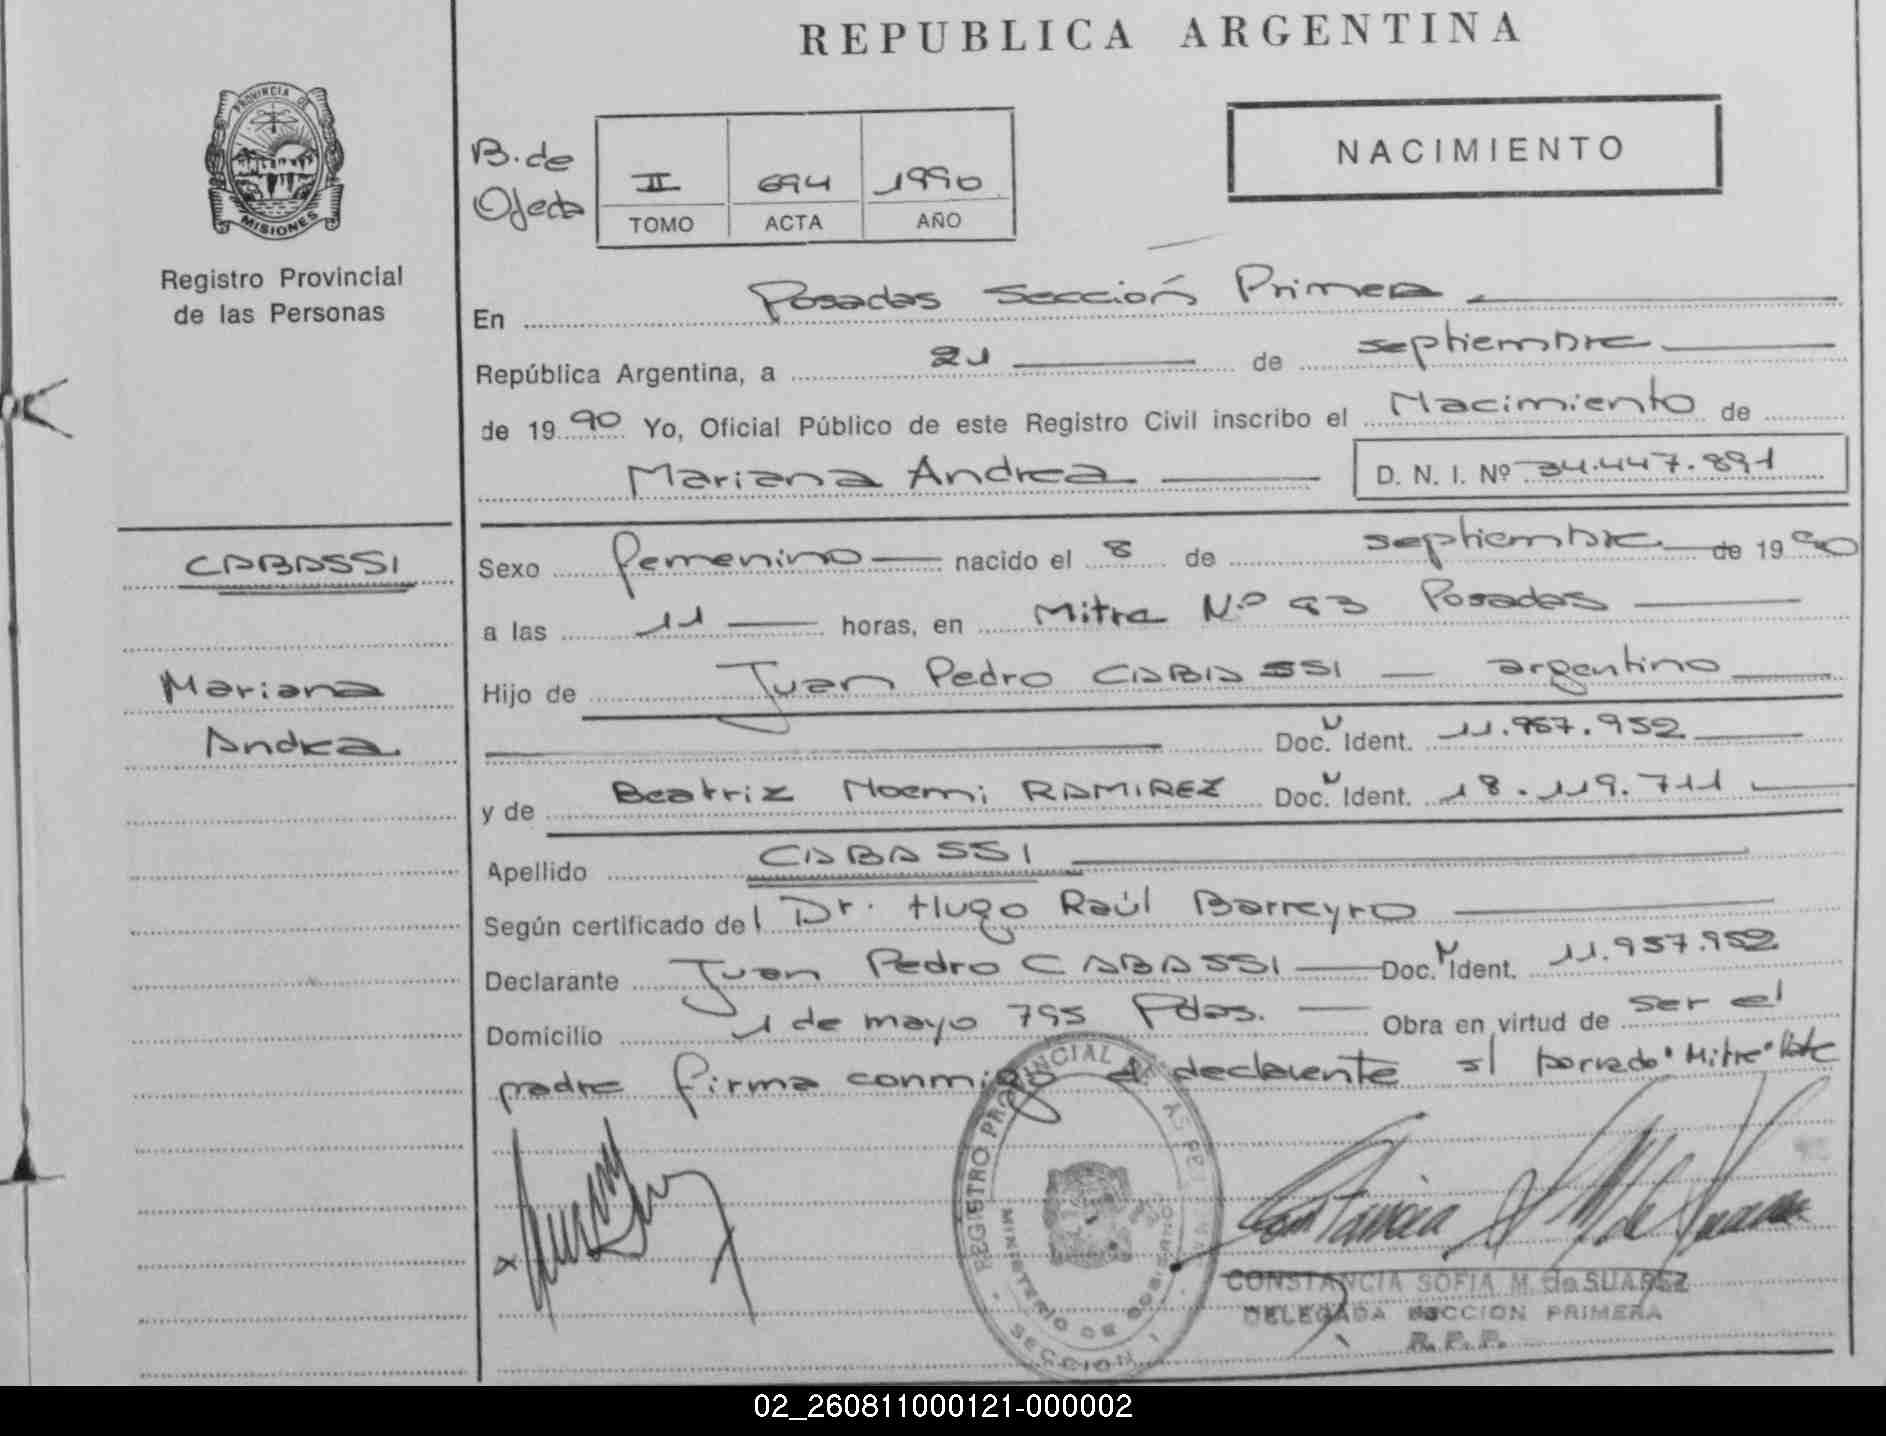 REPUBLICA ARGENTINA
PROVINCIA DE
MISIONES
Registro Provincial
de las Personas
B. de
Ojeda
II 694 1990
TOMO ACTA AÑO
NACIMIENTO
En Posadas Sección Primera
República Argentina, a 21 de septiembre
de 1990 Yo, Oficial Público de este Registro Civil inscribo el Nacimiento de
Mariana Andrea D. N. I. Nº 34.447.891
CABASSI
Mariana
Andrea
Sexo femenino nacido el 8 de septiembre de 1990
a las 11 horas, en Mitre N.º 93 Posadas
Hijo de Juan Pedro CABASSI argentino
Doc. Ident. 11.957.952
y de Beatriz Noemi RAMIREZ Doc. Ident. 18.119.711
Apellido CABASSI
Según certificado del Dr. Hugo Raúl Barreyro
Declarante Juan Pedro CABASSI Doc. Ident. 11.957.952
Domicilio 1 de mayo 795 Pdas. Obra en virtud de ser el
padre firma conmigo el declarente s/ borrado "Mitre" Vale
REGISTRO PROVINCIAL
MINISTERIO DE GOBIERNO
SECCION 1
CONSTANCIA SOFIA M. de SUAREZ
DELEGADA SECCION PRIMERA
R.P.P.
02_260811000121-000002